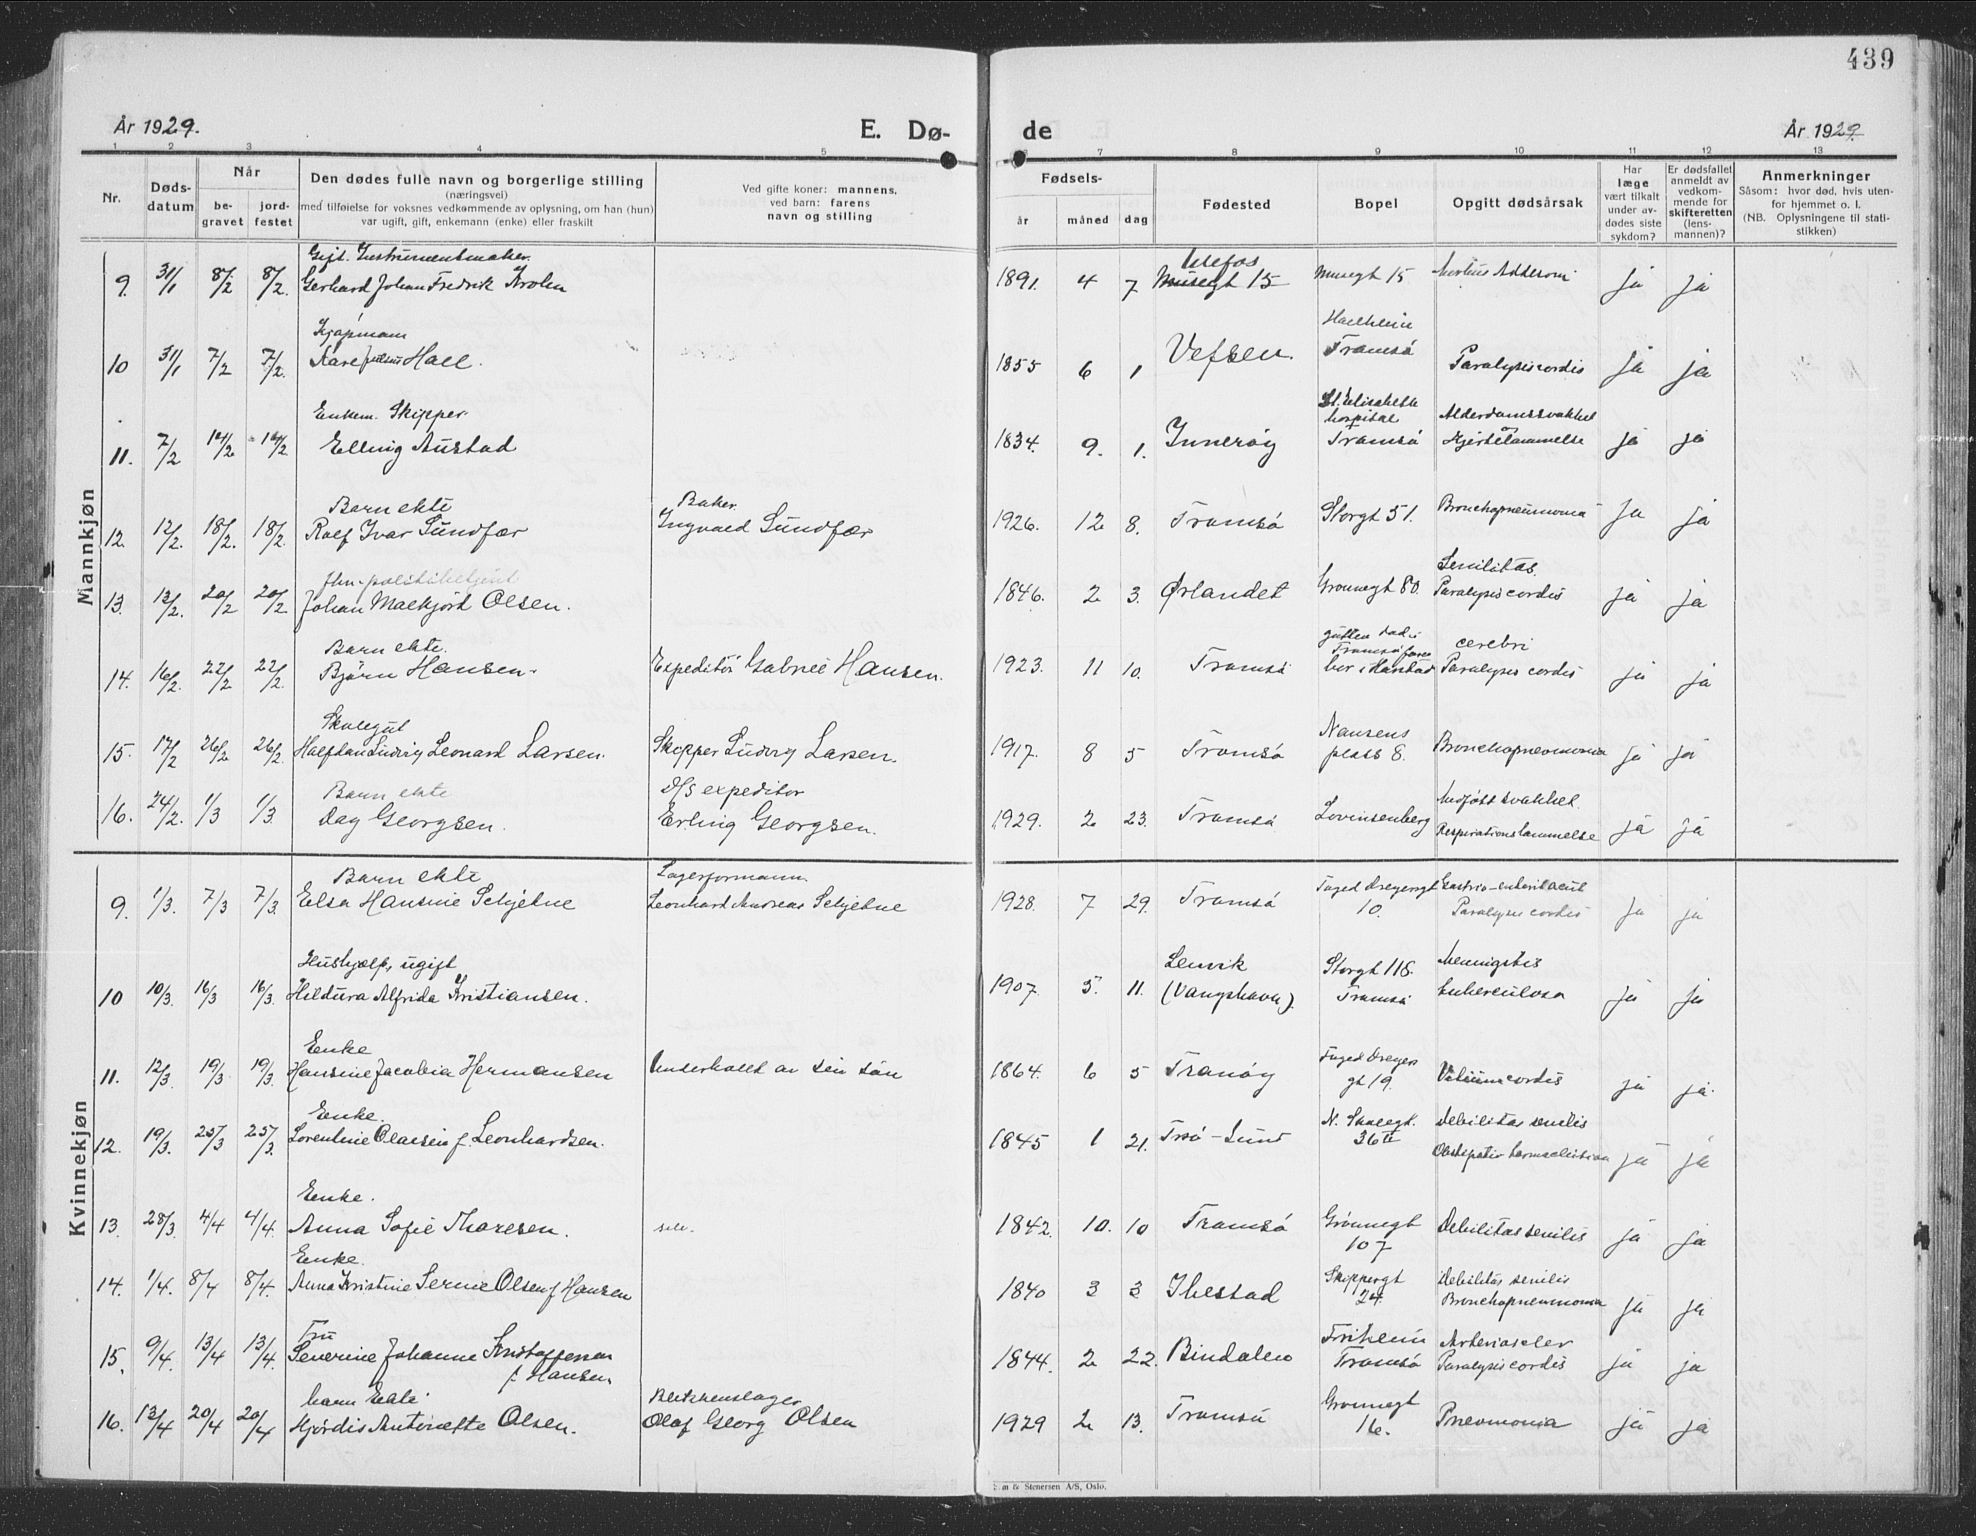 439
År 1929.
E. Dø-
de
År 1929
1 2 3 4 5 6 7 8 9 10 11 12 13
Nr.
Døds-
datum
Når
be-
gravet
jord-
festet
Den dødes fulle navn og borgerlige stilling
(næringsvei)
med tilføielse for voksnes vedkommende av oplysning, om han (hun)
var ugift, gift, enkemann (enke) eller fraskilt
Ved gifte koner: mannens,
ved barn: farens
navn og stilling
Fødsels-
år måned dag
Fødested
Bopel
Opgitt dødsårsak
Har
læge
vært tilkalt
under av-
dødes siste
sykdom?
Er dødsfallet
anmeldt av
vedkom-
mende for
skifteretten
(lens-
mannen)?
Anmerkninger
Såsom: hvor død, hvis uten-
for hjemmet o. l.
(NB. Oplysningene til stati-
stikken)
Mannkjøn
Gift. Instrumentmaker.
9. 31/1 8/2 8/2. Gerhard Johan Fredrik Krohn 1891. 4 7 Musegt 15 Musegt 15 Morbus Addisoni ja ja
Kjøpmann
10 31/1 7/2 7/2. Hall. 1855 6 1 Vefsen. Tromsø Paralysis cordis ja ja
Enkem. Skipper.
11. 7/2 14/2 14/2 Elling Austad 1834. 9. 1. Inderøy
St. Elisabeth
hospital
Tromsø
Alderdomssvakhet
Hjertelammelse ja ja
Barn ekte Baker.
12. 12/2. 18/2. 18/2. Rolf Ivar Sundfær Ingvald Sundfær 1926. 12 8. Tromsø Storgt 51. Bronchopneumonia ja ja
13. 13/2. 20/2 20/2. Johan Olsen. 1846. 2 3. Ørlandet Grønnegt 80.
Senilitas.
Paralysis cordis ja ja
Barn ekte.
14. 16/2. 22/2 22/2. Bjørn Hansen. Expeditør Gabriel Hansen. 1923. 11 10. Tromsø
bor i Harstad
cerebri
Paralysis cordis ja ja
Skolegut
15. 17/2 26/2 26/2. Halfdan Ludvig Leonard Larsen. Skipper Ludvig Larsen. 1917. 8 5 Tromsø
Nansens
plass 8. Bronchopneumonia ja ja
Barn ekte D/S expeditør
16. 24/2. 1/3 1/3. Dag Georgsen. Erling Georgsen. 1929. 2 23. Tromsø Lovinsenberg
Medfødt svakhet.
Respirationslammelse ja ja
Kvinnekjøn
Barn ekte Lagerformann.
9. 1/3. 7/3 7/3. Elsa Hansine Schjelne Leonhard Andreas Schjelne 1928. 7 29. Tromsø
Foged Dreyersgt
10.
Gastro-enterit acut
Paralysis cordis ja ja
Hushjelp, ugift
10 10/3. 16/3 16/3. Hildura Alfrida Kristiansen. 1907. 5. 11.
Lenvik
(Vangshavn).
Storgt 118.
Tromsø
Meningitis
tuberculosa ja ja
Enke
11. 12/3. 19/3 19/3. Hansine Jacobia Hermansen Underholdt av sin søn 1864. 6 5 Tranøy
Foged Dreyers
gt 19. Vitium cordis ja ja.
Enke.
12. 19/3. 25/3 25/3. Lorentine Olaisen f. Leonhardsen. 1845 1 21. Trsø-Sund
N. Skolegt.
36
Debilitas senilis
ja ja
Enke.
13. 28/3. 4/4 4/4. Anna Sofie Thoresen. selv. 1842. 10. 10 Tromsø
Grønnegt
107 Debilitas senilis ja ja
Enke.
14. 1/4. 8/4 8/4. Anna Kristine Serine Olsen f Hansen 1840 3 3 Ibestad
Skippergt
24.
Debilitas senilis
Bronchopneumonia ja ja
Fru
15. 9/4. 13/4 13/4. Severine Johanne Kristoffersen
f. Hansen. 1844. 2 22. Bindalen
Tromsø
Paralysis cordis ja ja
barn Ekte Blikkenslager
16. 13/4 20/4 20/4 Hjørdis Antonette Olsen. Olaf Georg Olsen 1929 2 13. Tromsø
Grønnegt
16. Pneumonia ja ja
& Stenersen A/S, Oslo.